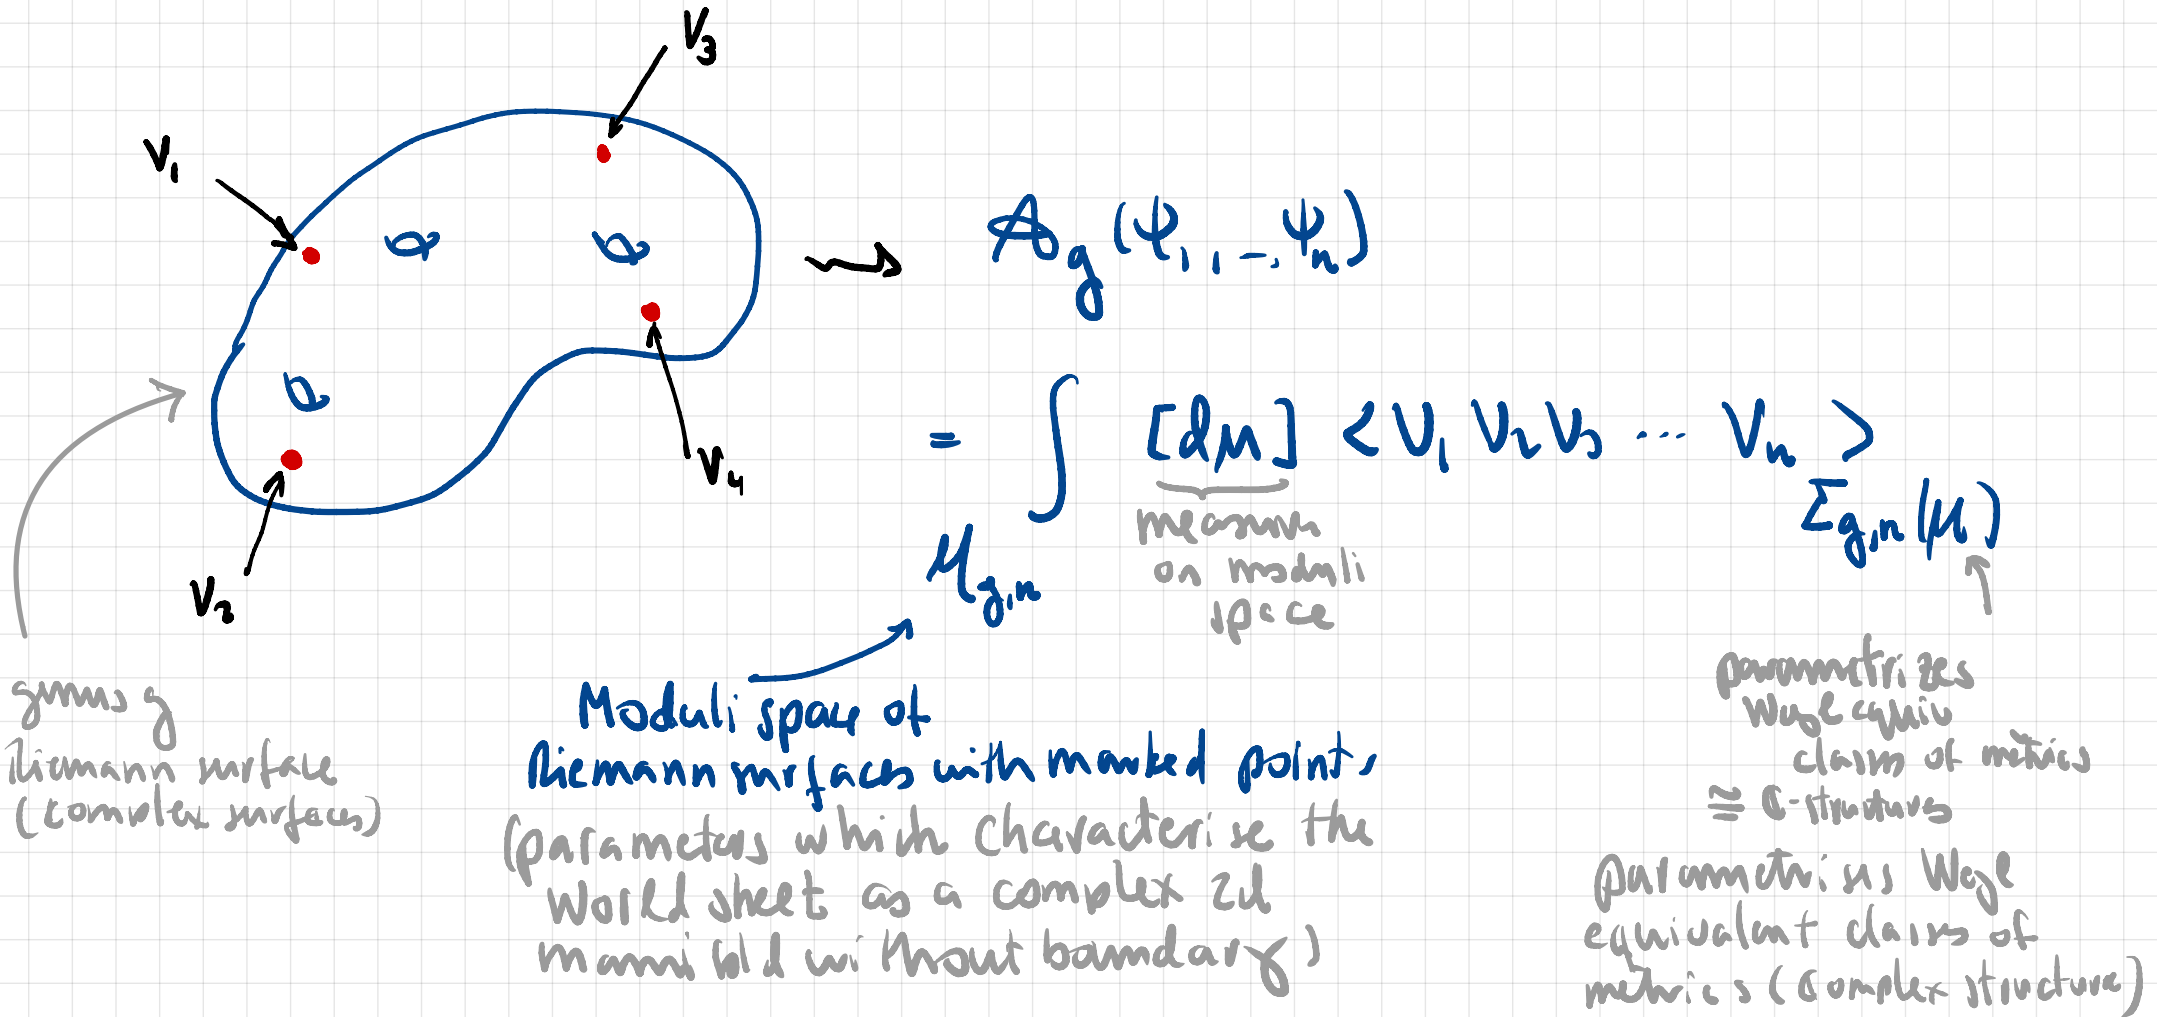 V₃
V₁
V₂
V₄
A_g (ψ₁, ..., ψ_n)
= ∫_{M_{g,n}} [dμ] <V₁ V₂ V₃ ... V_n>_{Σ_{g,n}(μ)}
measure
on moduli
space
genus g
Riemann surface
(complex surfaces)
Moduli space of
Riemann surfaces with marked points
(parameters which characterise the
world sheet as a complex 2d
manifold without boundary)
parametrizes
Weyl equiv
classes of metrics
≅ ℂ-structures
parametrises Weyl
equivalent classes of
metrics (complex structure)